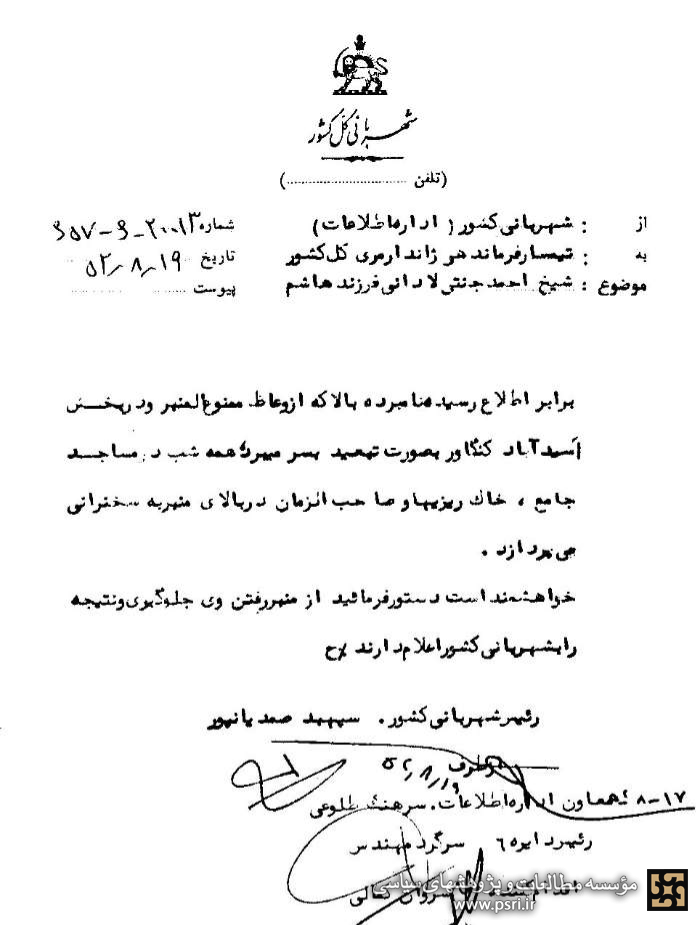 شهربانی کل کشور
(تلفن ..............................)
از : شهربانی کشور (اداره اطلاعات) شماره
به : تیمسار فرماندهی ژاندارمری کل کشور تاریخ ۵۲/۸/۱۹
موضوع : شیخ احمد جنتی لادانی فرزند هاشم پیوست ..................
برابر اطلاع رسیده نامبرده بالا که از وعاظ ممنوع‌المنبر و در بخش
اسدآباد کنگاور بصورت تبعید بسر میبرد همه شب در مساجد
جامع ، خاک ریزیها و صاحب الزمان در بالای منبر به سخنرانی
می‌پردازد .
خواهشمند است دستور فرمائید از منبر رفتن وی جلوگیری و نتیجه
را بشهربانی کشور اعلام دارند
رئیس شهربانی کشور . سپهبد صمدیانپور
از طرف ۵۲/۸/۱۹
۱۷-۸ معاون اداره اطلاعات . سرهنگ طلوعی
رئیس دایره ۶ سرگرد مهندس
اقدام کننده سروان کمالی
مؤسسه مطالعات و پژوهشهای سیاسی
www.psri.ir